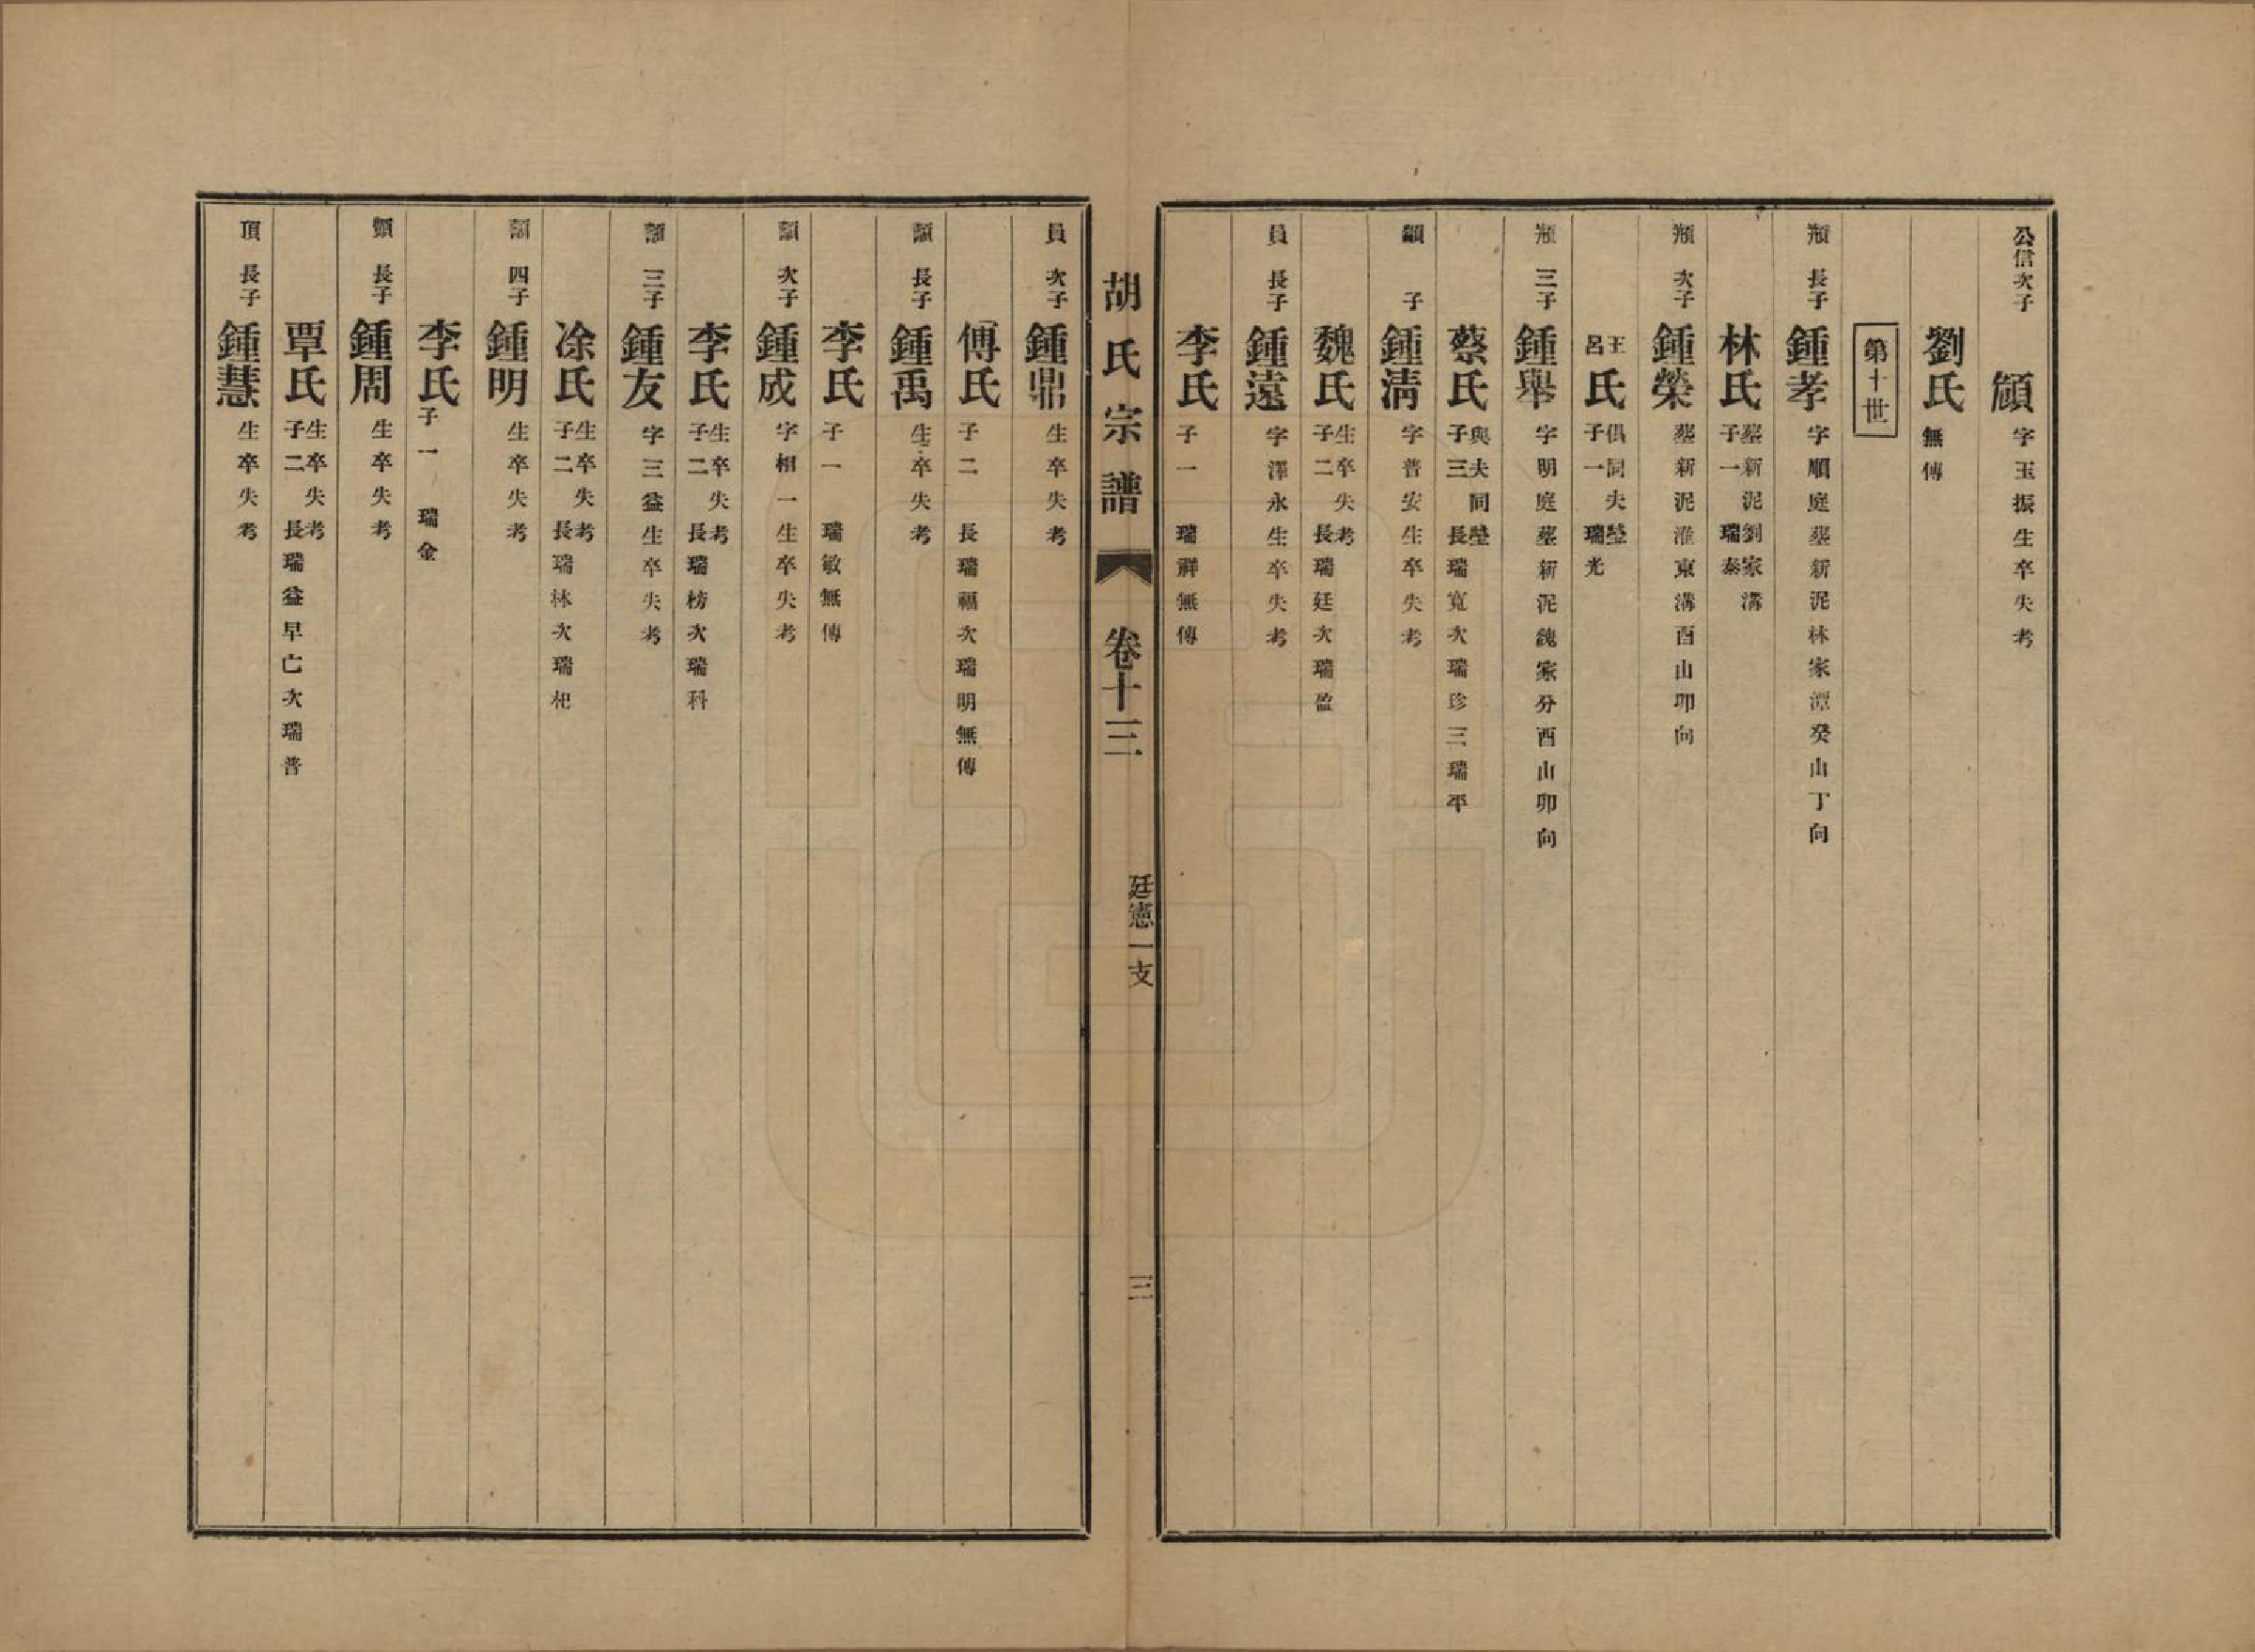 公信次子 頎 字玉振生卒失考
劉氏 無傳
第十世
長子 鍾孝 字順庭墓新泥林家潭癸山丁向
林氏 墓新泥劉家溝 子一 瑞泰
次子 鍾榮 墓新泥淮東溝酉山卯向
王呂氏 俱同夫塋 子一 瑞光
三子 鍾舉 字明庭墓新泥魏家分酉山卯向
蔡氏 與夫同塋 子三 長瑞寬次瑞珍三瑞平
子 鍾清 字普安生卒失考
魏氏 生卒失考 子二 長瑞廷次瑞盈
員 長子 鍾遠 字澤永生卒失考
李氏 子一 瑞祥無傳
胡氏宗譜 卷十三 廷憲一支 三
員 次子 鍾鼎 生卒失考
傅氏 子二 長瑞福次瑞明無傳
額 長子 鍾禹 生卒失考
李氏 子一 瑞敏無傳
額 次子 鍾成 字相一生卒失考
李氏 生卒失考 子二 長瑞榜次瑞科
額 三子 鍾友 字三益生卒失考
涂氏 生卒失考 子二 長瑞林次瑞杞
額 四子 鍾明 生卒失考
李氏 子一 瑞金
長子 鍾周 生卒失考
覃氏 生卒失考 子二 長瑞益早亡次瑞普
頂 長子 鍾慧 生卒失考